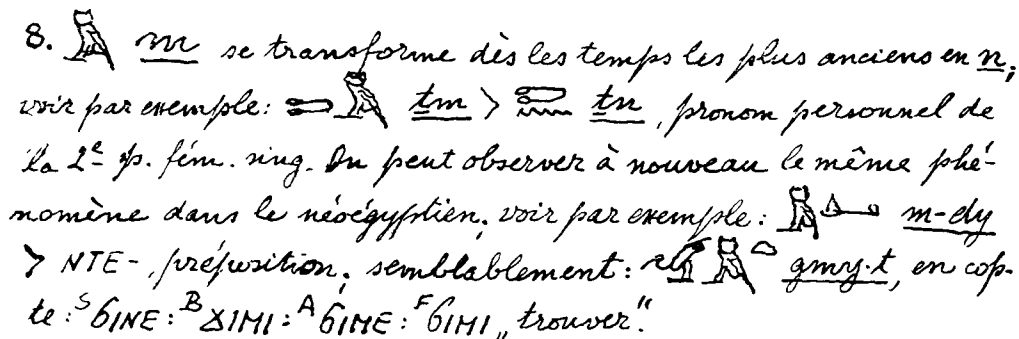 8. 𓅓 m se transforme dès les temps les plus anciens en n;
voir par exemple: 𓍿𓅓 ṯm > 𓍿𓈖 ṯn, pronom personnel de
la 2e p. fém. sing. On peut observer à nouveau le même phé-
nomène dans le néoégyptien; voir par exemple: 𓅓𓂞 m-dy
> ⲚⲦⲈ-, préposition; semblablement: 𓅓𓏏 gmy·t, en cop-
te: S ϬⲒⲚⲈ: B ϪⲒⲘⲒ: A ϬⲒⲘⲈ: F ϬⲒⲘⲒ „trouver“.